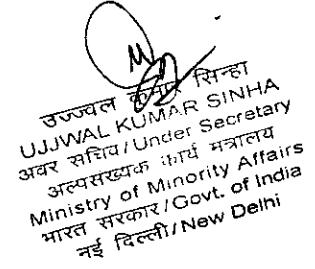 उज्ज्वल कुमार सिन्हा
UJJWAL KUMAR SINHA
अवर सचिव/Under Secretary
अल्पसंख्यक कार्य मंत्रालय
Ministry of Minority Affairs
भारत सरकार/Govt. of India
नई दिल्ली/New Delhi